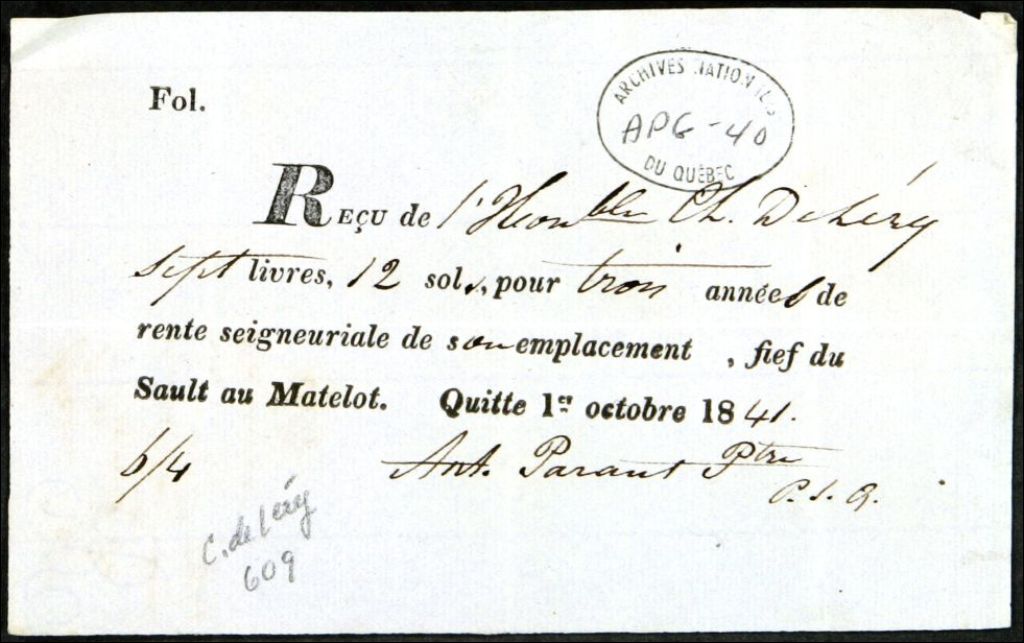 ARCHIVES NATIONALES
APG-40
DU QUÉBEC
Fol.
REÇU de l'Honble Ch. DeLéry
sept livres, 12 sols, pour trois années de
rente seigneuriale de son emplacement , fief du
Sault au Matelot. Quitte 1er octobre 1841.
6/4 Ant. Parant Ptre
P. S. Q.
C. de Léry
609